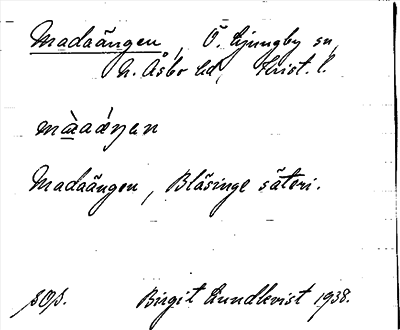 Madaängen, Ö. Ljungby sn,
N. Åsbo hd, Krist. l.
màaáŋen
Madaängen, Bläsinge säteri.
sOp. Birgit Lundkvist 1938.